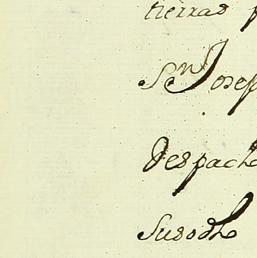 tierras
Sn Josep
Despach
Susodho